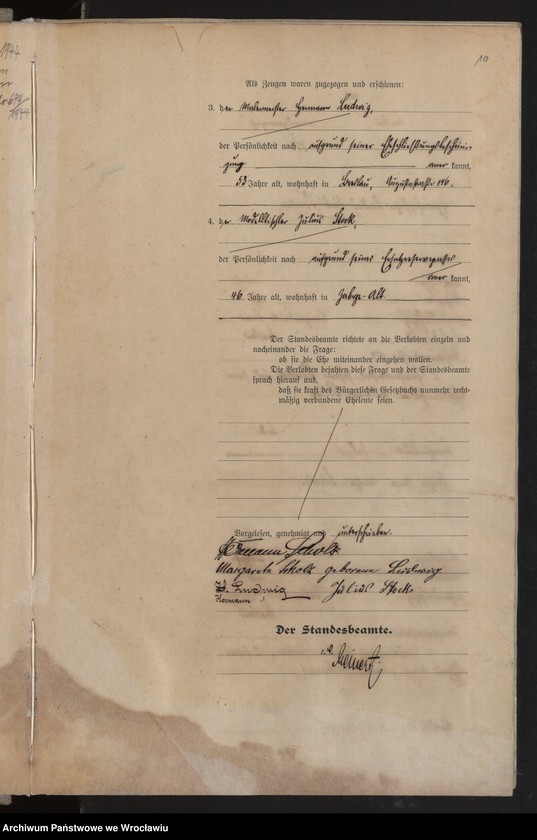 1944
1944
10
Als Zeugen waren zugezogen und erschienen:
3. der Malermeister Hermann Ludwig,
der Persönlichkeit nach aufgrund seiner Eheschließungsbescheini-
gung kannt,
53 Jahre alt, wohnhaft in Breslau, Augustastraße 146.
4. der Modelltischler Julius Stock,
der Persönlichkeit nach aufgrund seines Ersatzreservepasses
kannt,
46 Jahre alt, wohnhaft in Zabrze-Alt
Der Standesbeamte richtete an die Verlobten einzeln und
nacheinander die Frage:
ob sie die Ehe miteinander eingehen wollen.
Die Verlobten bejahten diese Frage und der Standesbeamte
sprach hierauf aus,
daß sie kraft des Bürgerlichen Gesetzbuchs nunmehr recht-
mäßig verbundene Eheleute seien.
Vorgelesen, genehmigt und unterschrieben.
Hermann Scholz
Margarete Scholz geborene Ludwig
H. Ludwig Julius Stock.
Hermann
Der Standesbeamte.
Meinert
Archiwum Państwowe we Wrocławiu